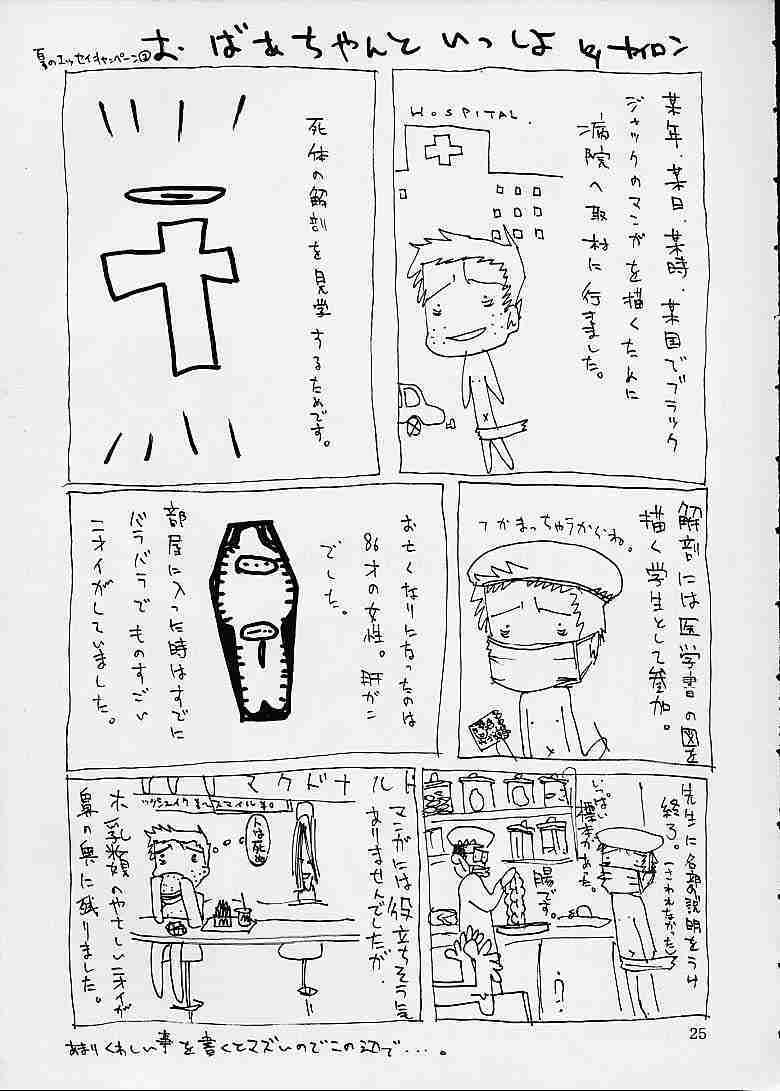 夏のエッセイキャンペーン②
おばあちゃんといっしょ by ナイロン
某年.某日.某時.某国でブラック
ジャックのマンガを描くために
病院へ取材に行きました。
HOSPITAL.
死体の解剖を見学するためです。
解剖には医学書の図を
描く学生として参加。
つかまっちゃうからね。
お亡くなりになったのは
86才の女性。肝がん
でした。
部屋に入った時はすでに
バラバラでものすごい
ニオイがしていました。
先生に各部の説明をうけ
終了。(さわれなかった)
いっぱい
標本があった。
腸です。
マクドナルド
マンガには役立ちそうに
ありませんでしたが、
人は死ぬ
ホルマリン
乳粉類のやさしいニオイが
鼻の奥に残りました。
あまりくわしい事を書くとマズいのでこの辺で・・・。
25